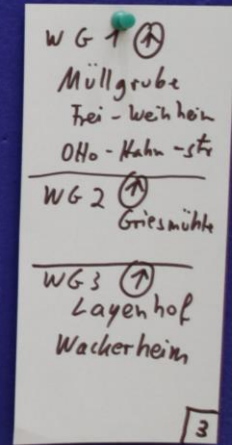 WG 1 ↑
Müllgrube
Frei-Weinheim
Otto-Hahn-Str
WG 2 ↑
Griesmühle
WG 3 ↑
Layenhof
Wackerheim
3